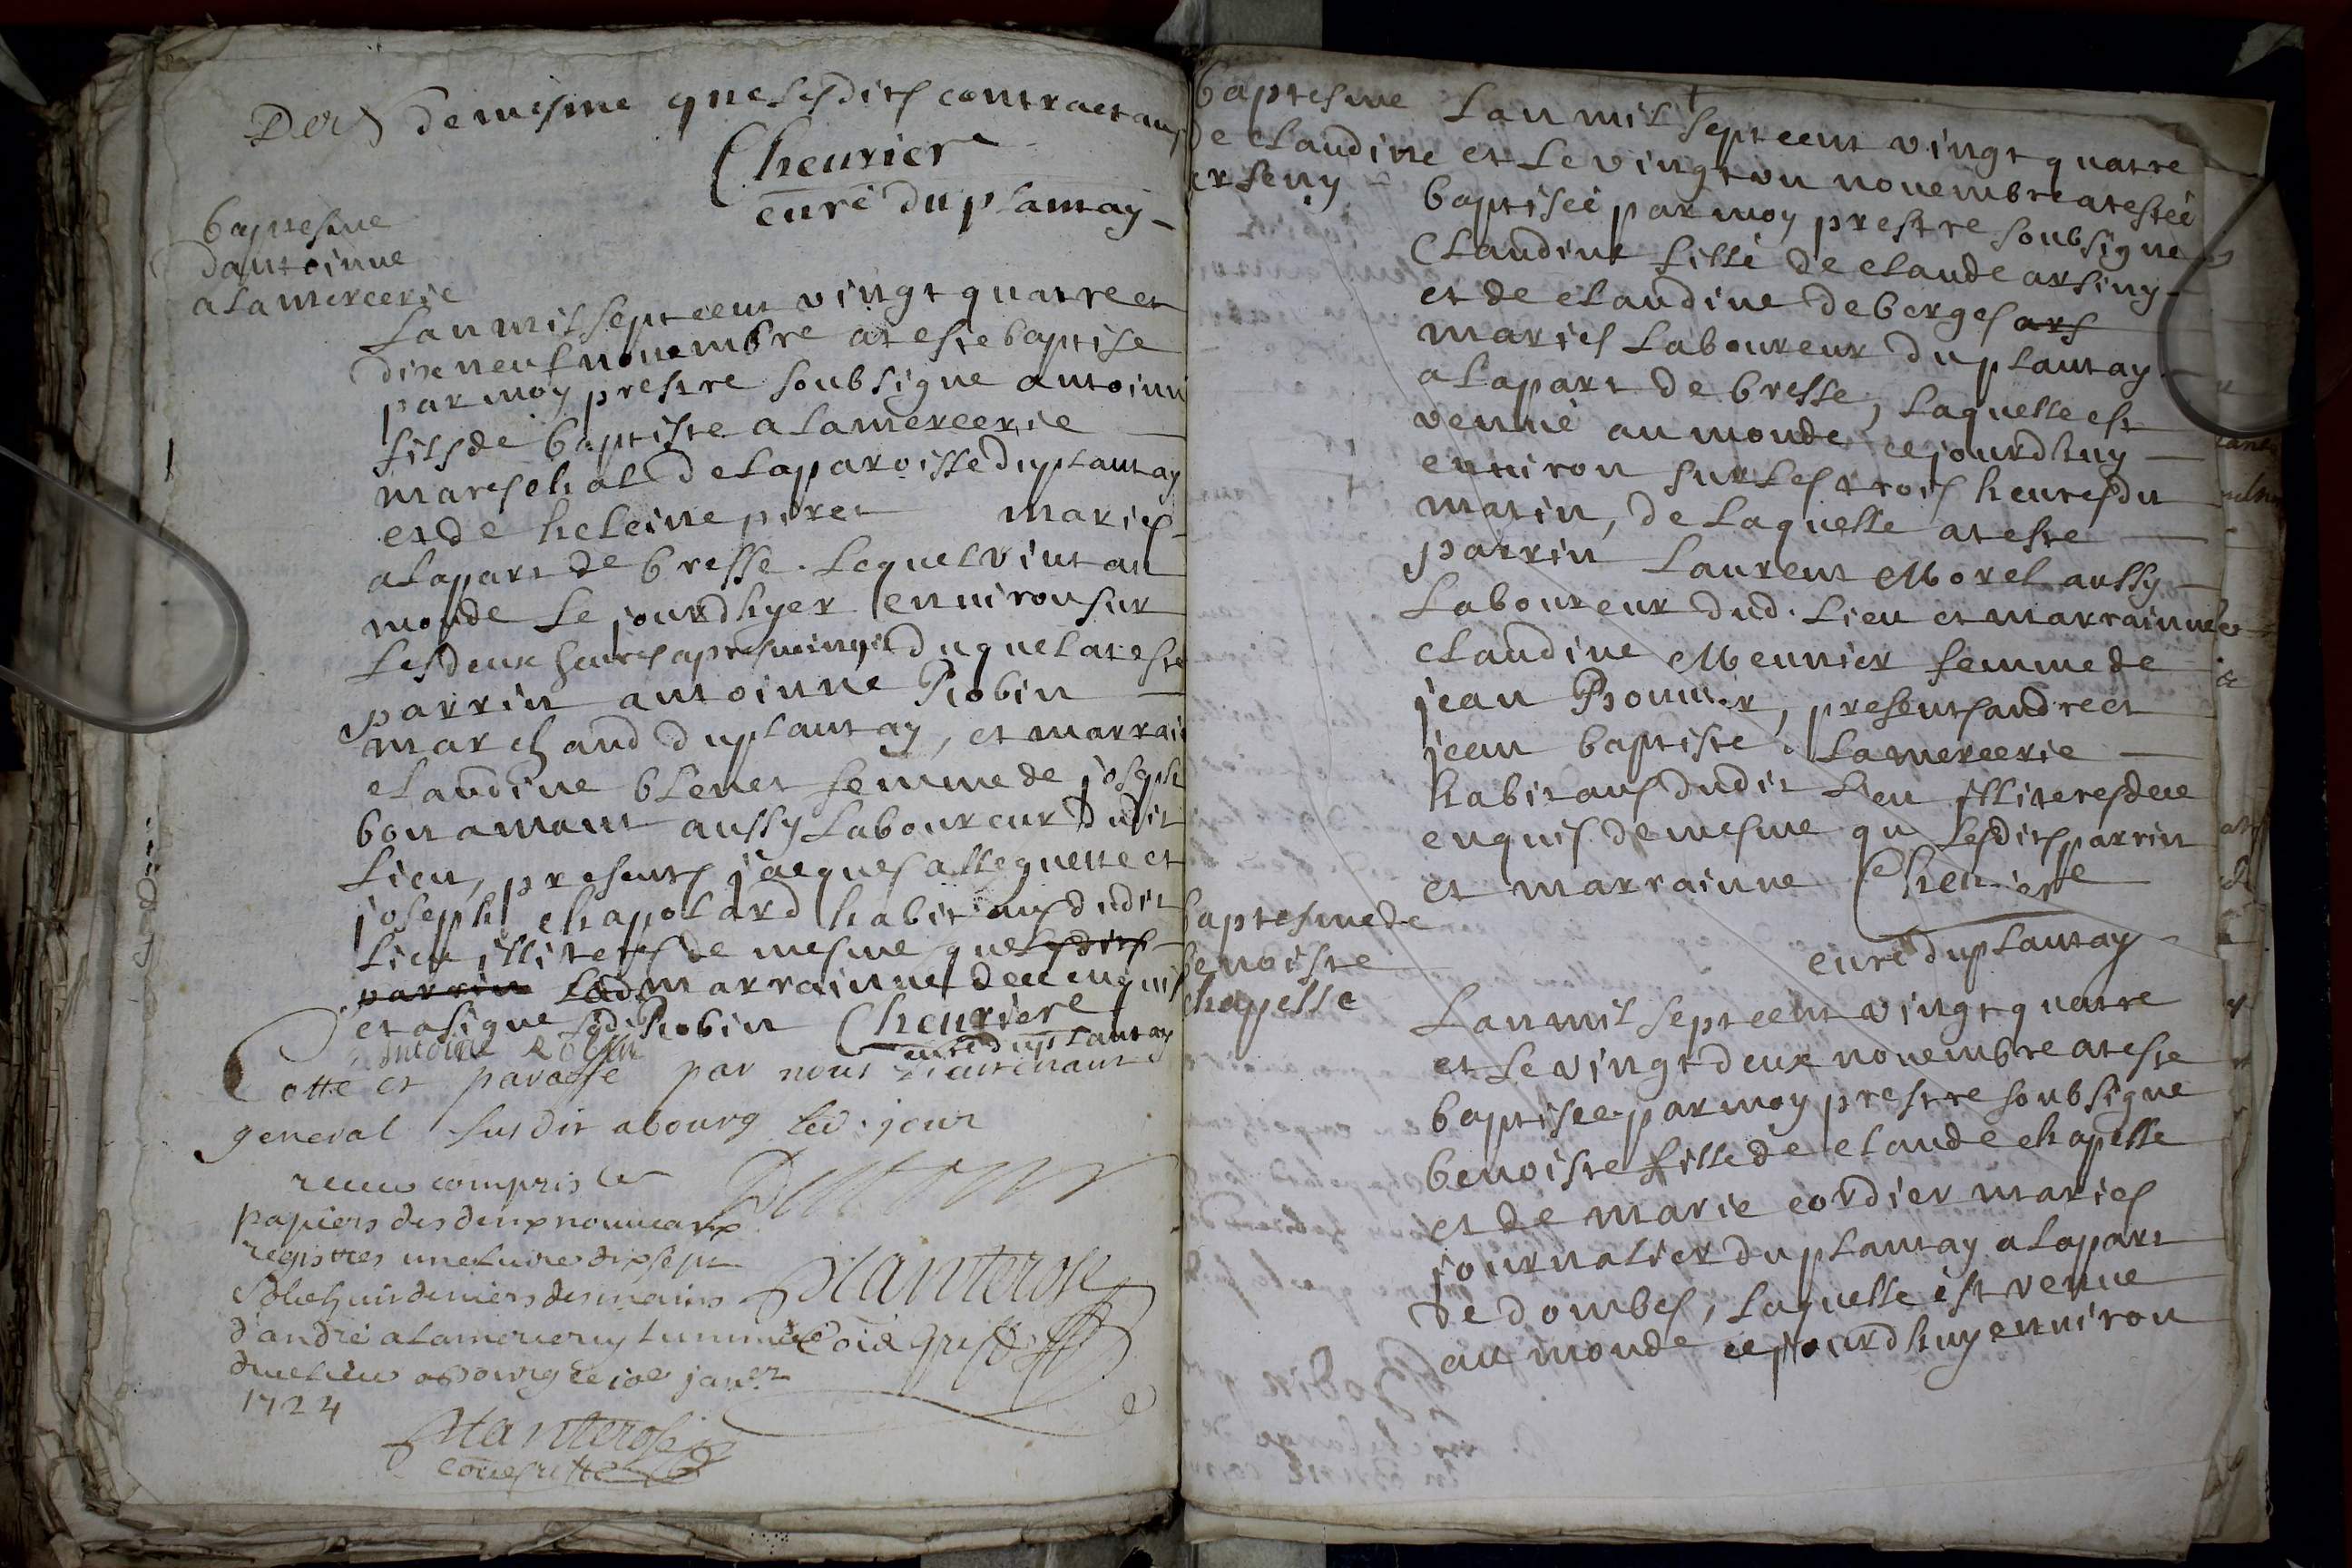 Ders de mesme que lesdits contractans
Cheurier
curé du plantay
baptesme
dantoinne
alamercerie
Lan mil sept cent vingt quatre et
dix neuf nouembre at este baptise
par moy prestre soubsigne antoinn
fils de baptiste alamercerie
mareschal de la paroisse du plantay
et de heleine piret maries
a la part de bresse. Lequel vint au
monde le jourdhyer enuiron sur
les deux heures apres duquel at este
parrin antoinne Robin
marchand du plantay, et marrai
claudine blenet femme de joseph
bonamant aussy laboureur dudit
lieu, presents jacques allegnette et
joseph chapolard habitans dudit
lieu illiteres de mesme que lesdits
parrin lad. marrainne dece enquis
et a signe led. Robin Cheurier
antoine Robin curé du plantay
Cotté et paraffé par nous Lieutenant
general susdit a bourg led. jour
receu compris les
papiers des deux nouueaux
registres une liure dix sept
sols huit deniers des mains
d'andré alamercery
dud lieu a bourg le 10e janer
1724
baptesme
de claudine
erseny
Lan mil sept cent vingt quatre
et le vingt un nouembre at esteé
baptiseé par moy prestre soubsigne
Claudine fille de claude arsiny
et de claudine deberges ars
maries laboureur du plantay
a la part de bresse, laquelle est
venue au monde cejourdhuy
enuiron sur les trois heures du
matin, de laquelle at este
parrin Laurent Morel aussy
laboureur dud. lieu et marrainne
claudine Meunier femme de
jean Bonnier, presents andre et
jean baptiste Lamercerie
habitans dudit lieu illiteres dece
enquis de mesme qu lesdits parrin
et marrainne Cheurier
curé du plantay
baptesme de
benoiste
chapelle
Lan mil sept cent vingt quatre
et le vingt deux nouembre at este
baptisee par moy prestre soubsigne
benoiste fille de claude chapelle
et de marie cordier maries
journalier du plantay a la part
de dombes, laquelle est venue
au monde cejourdhuy enuiron